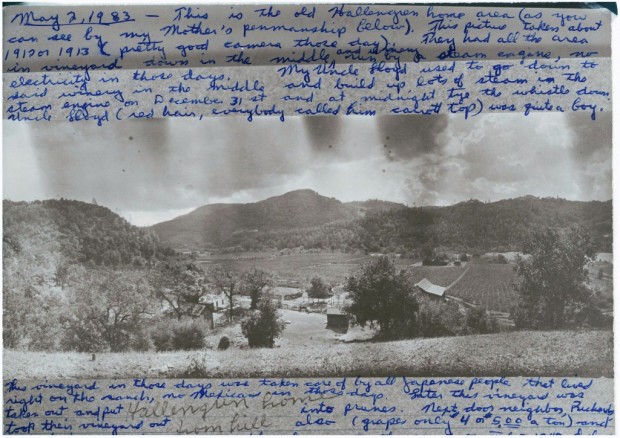 May 2, 1983 — This is the old Hallengren home area (as you
can see by my Mother's penmanship below). This picture taken about
1912 or 1913 (pretty good camera those days). They had all the area
in vineyard down in the middle and winery run by a steam engine, no
electricity in those days. My Uncle Lloyd used to go down to
said winery in the middle and build up lots of steam in the
steam engine on December 31st and at midnight tye the whistle down.
Uncle Lloyd (red hair, everybody called him carrot top) was quite a boy.
This vineyard in those days was taken care of by all Japanese people that lived
right on the ranch, no Mexicans in those days. Later this vineyard was
taken out and put into prunes. Next door neighbor,
Hallengren home
took their vineyard out also (grapes only 4 or 5.00 a ton) and
from hill